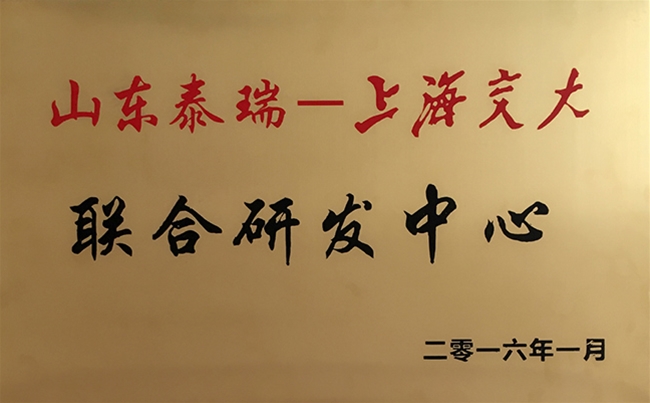 山东泰瑞一上海交大
联合研发中心
二零一六年一月